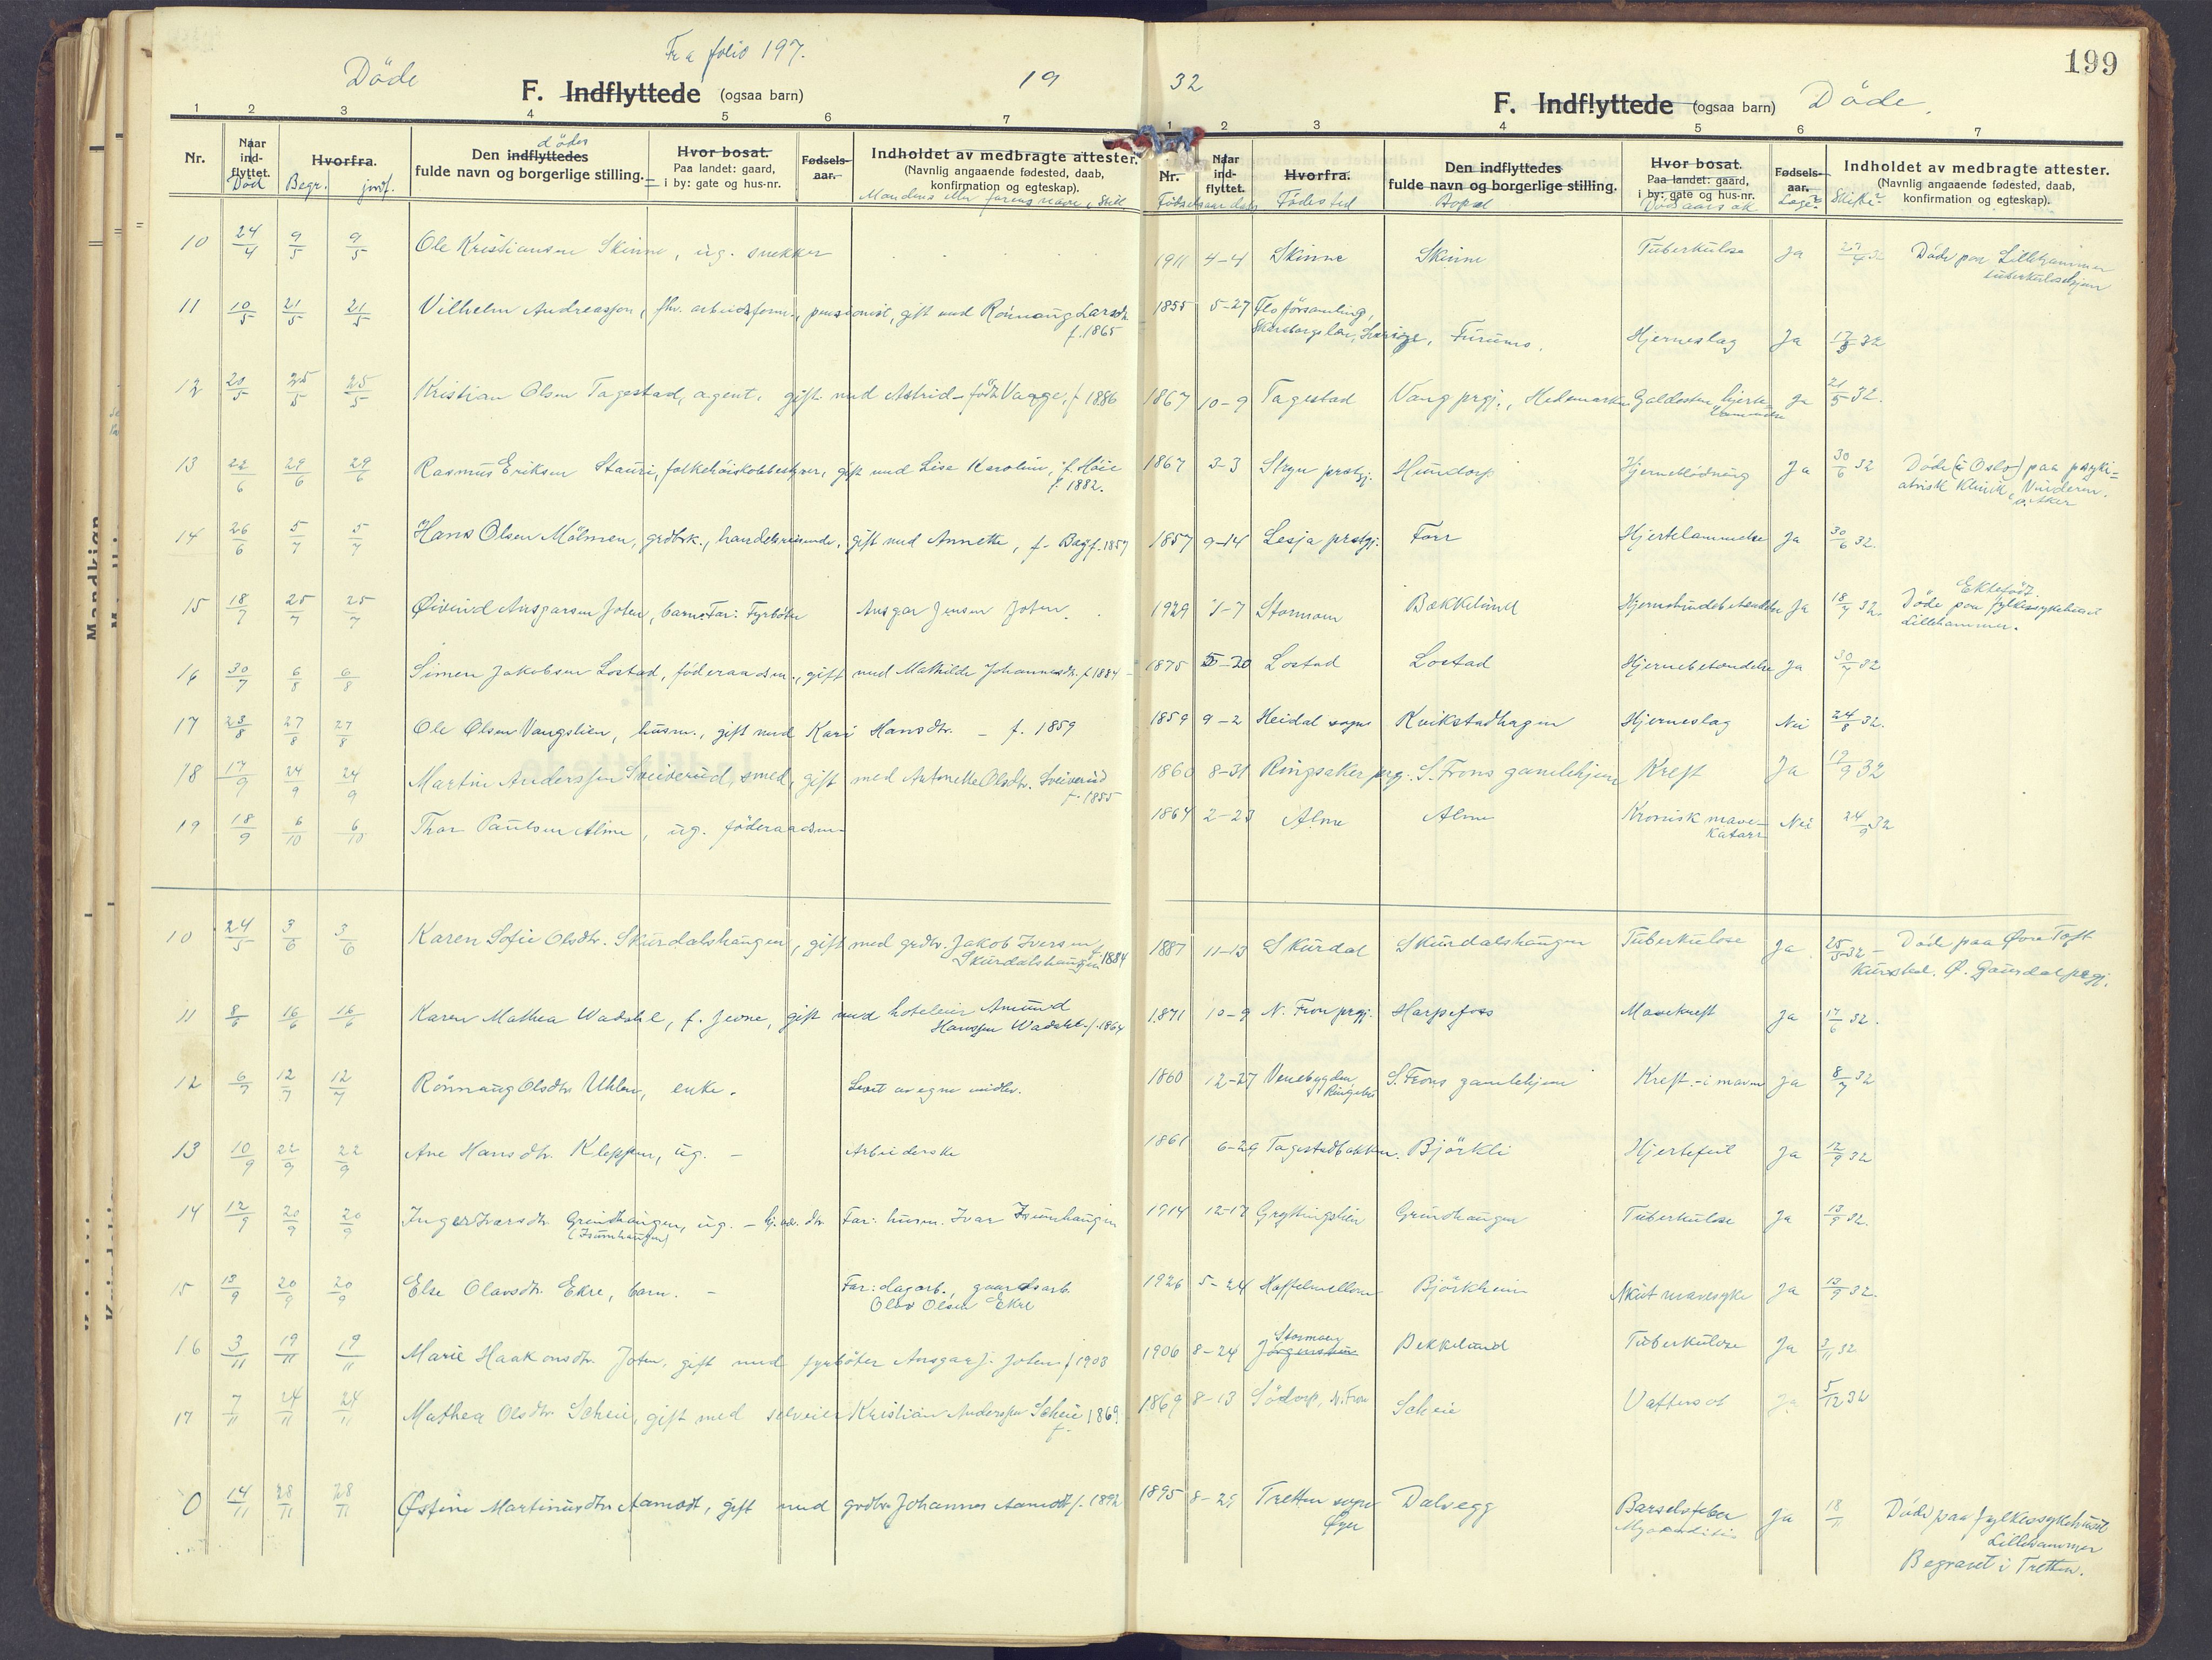 Fra folio 197.
Døde
F. Indflyttede (ogsaa barn)
19
1 2 3 4 5 6 7
Nr.
Naar ind-flyttet.
Død
Hvorfra.
Begr. jordf.
døder
Den indflyttedes
fulde navn og borgerlige stilling.
Hvor bosat.
Paa landet: gaard,
i by: gate og hus-nr.
Fødsels-aar.
Indholdet av medbragte attester.
(Navnlig angaaende fødested, daab,
konfirmation og egteskap).
10 24/4 9/5 9/5 Ole Kristiansen Skinne, ug. snekker
11 10/5 21/5 21/5 Vilhelm Andreasson, fhv. arbeidsform., pensionist, gift med Rönnaug Larsdtr.
f. 1865
12 20/5 25/5 25/5 Kristian Olsen Tagestad, agent, gift med Astrid - födt Vange, f 1886
13 22/6 29/6 29/6 Rasmus Eriksen Stauri, folkehöiskolebestyrer, gift med Lisa Karoline, f. Höie
f. 1882.
14 26/6 5/7 5/7 Hans Olsen Mölmen, grdbrk., handelsreisende, gift med Annette, f. Bøy f. 1857
15 18/7 25/7 25/7 Øivind Ansgarsen Joten, barn. Far: Fyrböter Ansgar Jensen Joten.
16 30/7 6/8 6/8 Simen Jakobsen Lostad, föderaadsm., gift med Mathilde Johannesdtr. f 1884
17 23/8 27/8 27/8 Ole Olsen Vangslien, husm., gift med Kari Hansdtr. - f. 1859
18 17/9 24/9 24/9 Martin Anderssen Sveiverud, smed, gift med Antonette Olsdtr. Sveiverud
f. 1855
19 18/9 6/10 6/10 Thor Paulsen Alme, ug. föderaadsm.
10 24/5 3/6 3/6 Karen Sofie Olsdtr. Skurdalshaugen, gift med grdbr. Jakob Iversen
Skurdalshaugen f. 1884
11 8/6 16/6 16/6 Karen Mathea Wadahl, f. Jevne, gift med hoteleier Amund
Hanssen Wadahl f. 1864
12 6/7 12/7 12/7 Rönnaug Olsdtr. Uhlen, enke. Levet av egne midler.
13 10/9 22/9 22/9 Ane Hansdtr. Kleppen, ug. - Arbeiderske
14 12/9 20/9 20/9 Inger Ivarsdtr. Grindhaugen, ug. - hj.av. dtr Far: husm. Ivar
15 13/9 20/9 20/9 Else Olavsdtr. Ekre, barn. - Far: dagarb., gaardsarb.
Olav Olsen Ekre
16 3/11 19/11 19/11 Marie Haakonsdtr. Joten, gift med fyrböter Ansgar J. Joten f 1903
17 7/11 24/11 24/11 Mathea Olsdtr. Scheie, gift med selveier Kristian Anderssen Scheie f. 1869
0 14/11 28/11 28/11 Østine Martinusdtr. Aamodt, gift med grdbr. Johannes Aamodt f. 1892
199
32
F. Indflyttede (ogsaa barn) Døde.
1 2 3 4 5 6 7
Nr.
Naar ind-flyttet.
Hvorfra.
Fødested
Den indflyttedes
fulde navn og borgerlige stilling.
Bopæl
Hvor bosat.
Paa landet: gaard,
i by: gate og hus-nr.
Dødsaarsak
Fødsels-aar.
Læge?
Skifte?
Indholdet av medbragte attester.
(Navnlig angaaende fødested, daab,
konfirmation og egteskap).
1911 4-4 Skinne Skinne Tuberkulose Ja Døde paa Lillehammer
tuberkulosehjem
1855 5-27 Flo församling,
Skaraborgs län, Sverige, Furumo. Hjerneslag Ja 17/5 32
1867 10-9 Tagestad Vang prgj., Hedemarken Galdesten, hjerte Ja 21/5 32.
1867 3-3 Stryn prestgj. Hundorp Hjerneblödning Ja 30/6 32 Döde (i Oslo) paa psyki-
atrisk Klinik, Vinderen,
v. Aker
1857 9-14 Lesja prestgj. Forr Hjertelammelse Ja 30/6 32.
1929 1-7 Stormoen Bækkelund Hjernehindebetændelse Ja 18/7 32. Ektefödt.
Döde paa fylkessykehuset
Lillehammer.
1875 5-20 Lostad Lostad Hjernebetændelse Ja 30/7 32
1859 9-2 Heidal sogn Kvikstadhagen Hjerneslag Nei 24/8 32.
1860 8-31 Ringsaker prg. S. Frons gamlehjem Kreft Ja 19/9 32
1864 2-23 Alme Alme Kronisk mave-
katarr Nei 24/9 32
1887 11-13 Skurdal Skurdalshaugen Tuberkulose Ja 25/5 32 - Döde paa Øvre Toft
kursted. Ø. Gausdal prgj.
1871 10-9 N. Fron prgj. Harpefoss Mavekreft Ja 17/6 32.
1860 12-27 Venebygden
Ringebu S. Frons gamlehjem Kreft - i maven Ja 8/7 32
1861 6-29 Tagestadbakken. Björkli Hjertefeil Ja 12/9 32
1914 12-17 Gryttingslien Grindhaugen Tuberkulose Ja 13/9 32.
1926 5-24 Björkheim Akut mavesyke Ja 13/9 32.
1906 8-24 Stormoen
Bekkelund Tuberkulose Ja 3/11 32
1869 8-13 Södorp, N. Fron Scheie Vattersot Ja 5/12 32
1895 8-29 Tretten sogn
Øyer Dalsegg Barselsfeber
Ja 18/11 Döde paa fylkessykehuset
Lillehammer
Begravet i Tretten.